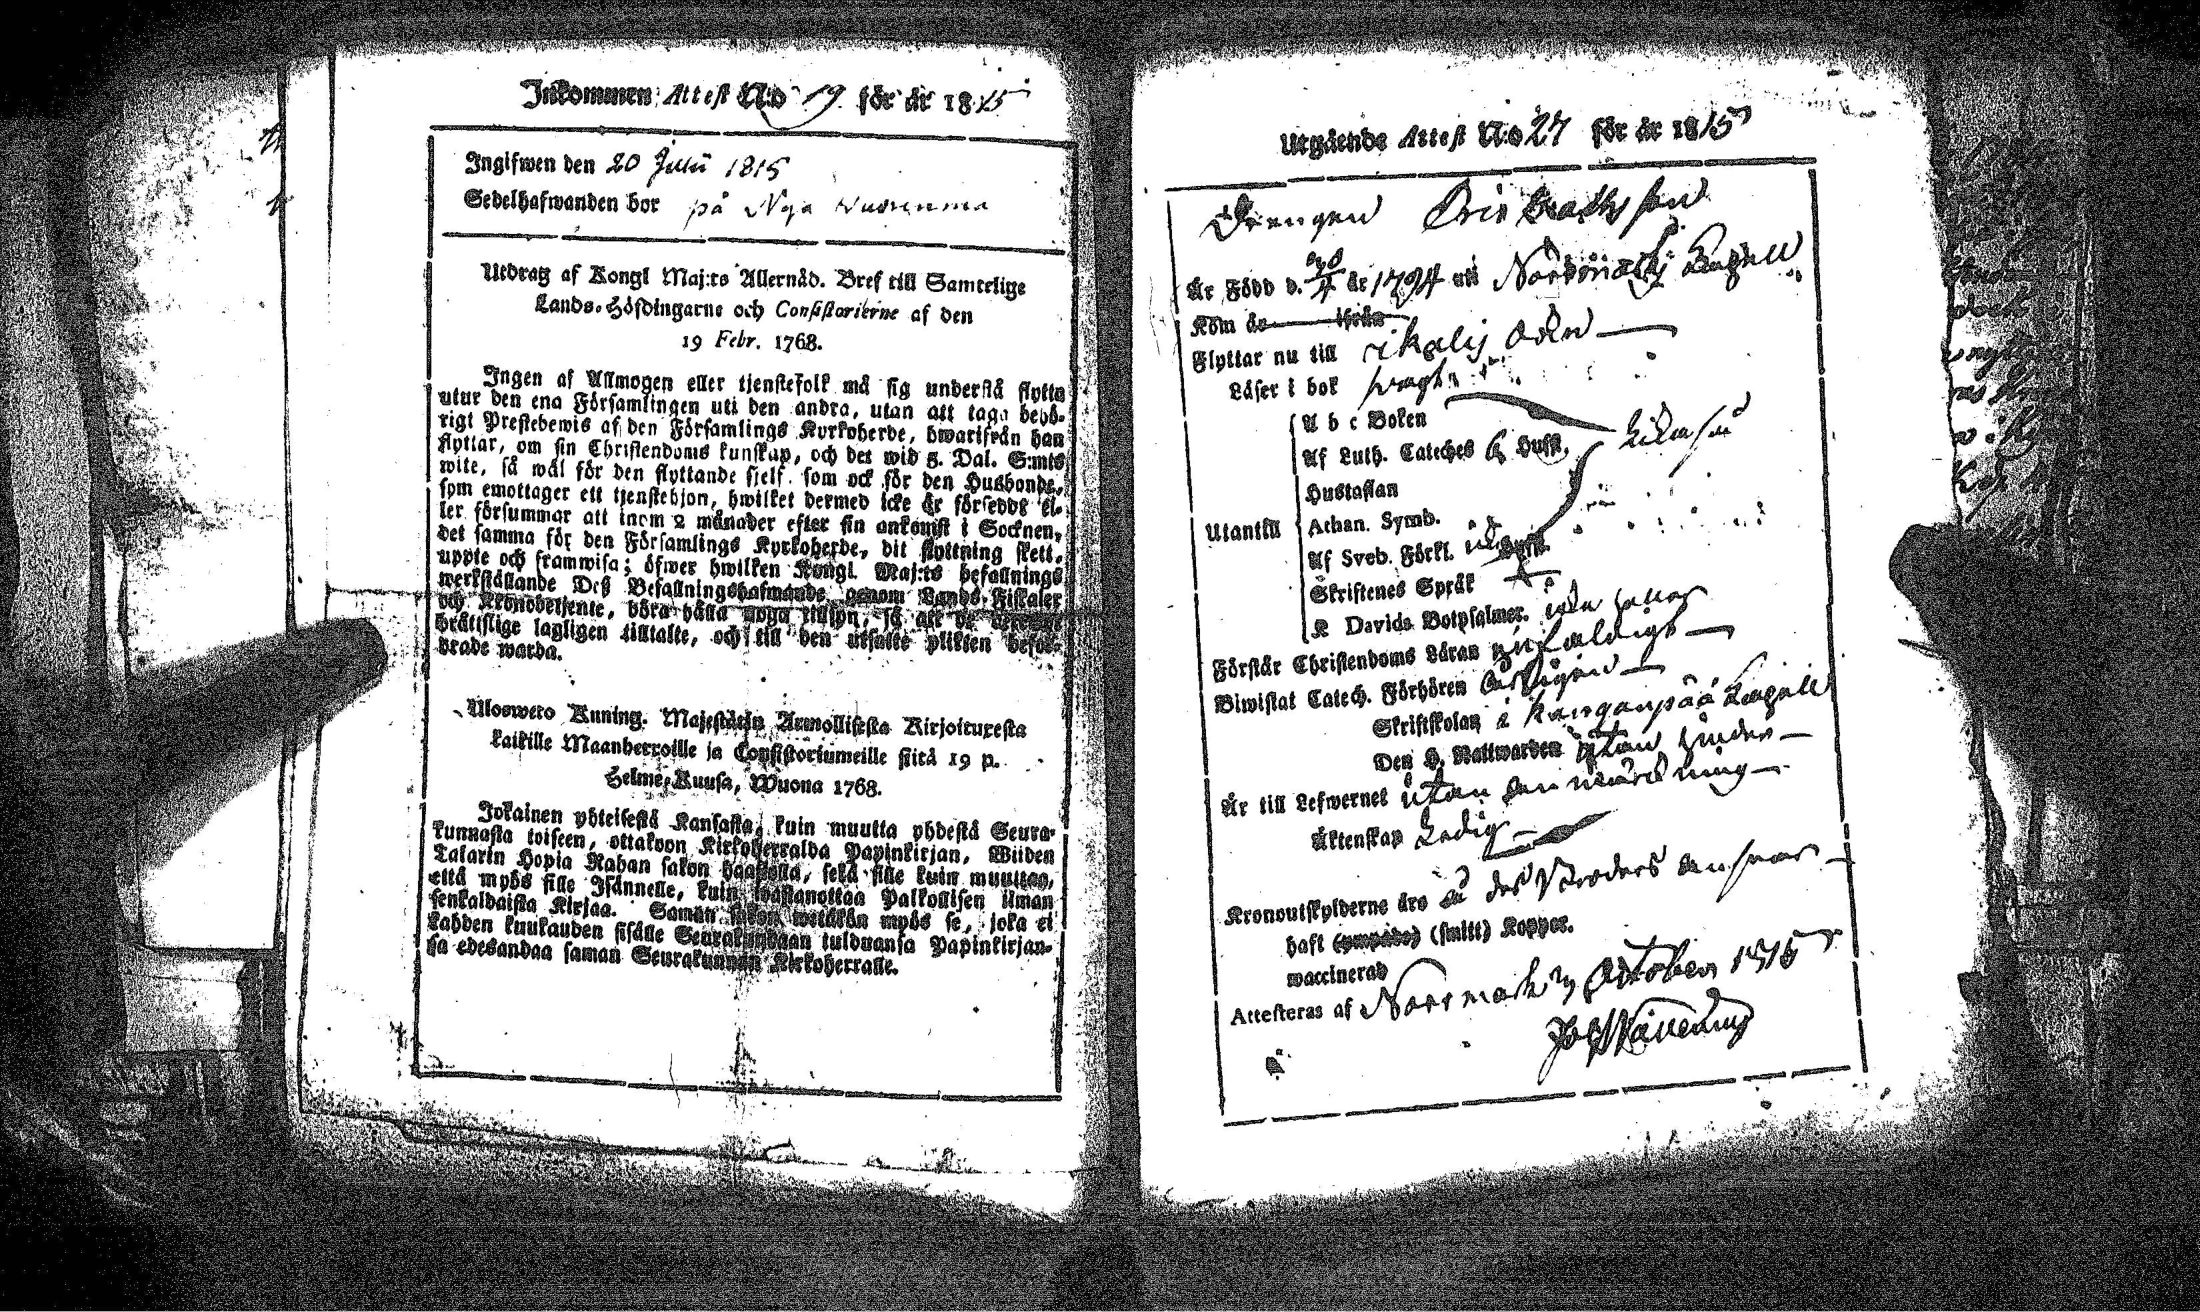 Inkommen Attest N:o 19. för år 1815
Ingifwen den 20 Julii 1815
Sedelhafwanden bor på Nya
Utdrag af Kongl Maj:ts Allernåd. Bref till Samtelige
Lands-Höfdingarne och Consistorierne af den
19 Febr. 1768.
Ingen af Allmogen eller tjenstefolk må sig understå flytta
utur den ena Församlingen uti den andra, utan att taga behö-
rigt Prestebewis af den Församlings Kyrkoherde, hwarifrån han
flyttar, om sin Christendoms kunskap, och det wid 5. Dal. S:mts
wite, så wäl för den flyttande sjelf. som ock för den Husbonde,
som emottager ett tjenstehjon, hwilket dermed icke är försedde el-
ler försummar att inom 2 månader efter sin ankomst i Socknen,
det samma för den Församlings Kyrkoherde, dit flyttning skett,
uppte och framwisa; öfwer hwilken Kongl. Maj:ts befallnings
werkställande Deß Befallningshafwande genom Lands-Fiskaler
och Kronobetjente, böra hålla noga tillsyn, så att de
brättslige lagligen tilltalte, och till den utsatte plikten befor-
drade warda.
Uloswето Kuning. Majestätin Armollisesta Kirjoituxesta
kaikille Maanherroille ja Consistoriumeille siitä 19 p.
Helme-Kuusa, Wuona 1768.
Jokainen yhteisestä Kansasta, kuin muutta yhdestä Seura-
kunnasta toiseen, ottakoon Kirkoherralda Papinkirjan, Wiiden
Talarin Hopia Rahan sakon haastolla, sekä sille kuin muuttaa,
että myös sille Isännelle, kuin wastanottaa Palkollisen ilman
senkaldaista Kirjaa. Saman sakon wetäkön myös se, joka ei
kahden kuukauden sisälle Seurakundaan tulduansa Papinkirjan-
sa edesandaa saman Seurakunnan Kirkoherralle.
Utgående Attest N:o 27 för år 1815
Drengen
Är Född d. år 1794 uti Norrmarks Capell
Kom år ifrån
Flyttar nu till
Läser i bok
A b c Boken
Af Luth. Cateches & Husft.
Hustaflan
Utantill Athan. Symb.
Af Sveb. Förkl.
Skriftenes Språk
K Davids Botpsalmer.
Förstår Christendoms Läran
Biwistat Catech. Förhören
Skriftskolan i Kanganpää Capell
Den H. Nattwarden utan hinder
Är till Lefwernet utan anmärckning
Äktenskap Ledig
Kronoutskylderne äro
haft (ympade) (smitt) Koppor.
waccinerad
Attesteras af Norrmark October 1815